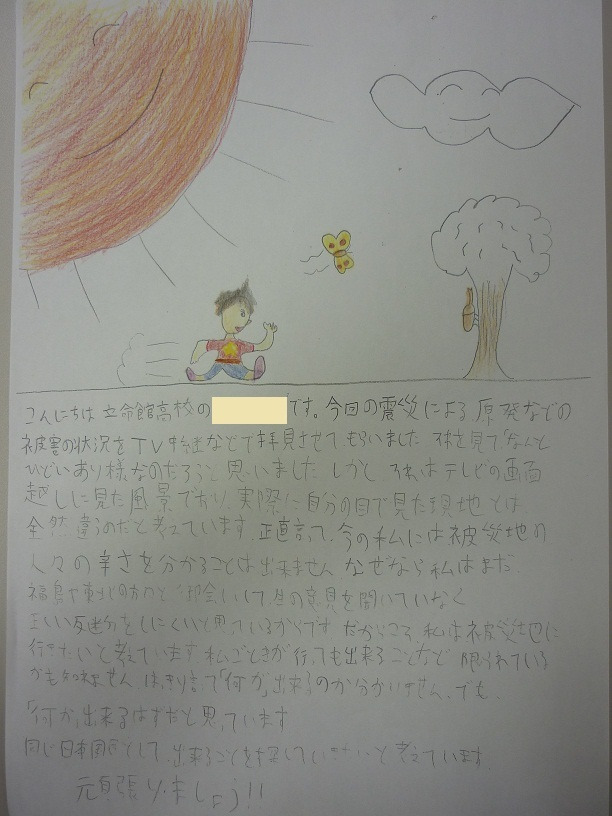 こんにちは 立命館高校の です。今回の震災による原発などの
被害の状況をTV中継などで拝見させてもらいました それを見て「なんと
ひどいあり様なのだろう」と思いました しかし、それはテレビの画面
越しに見た風景であり 実際に自分の目で見た現地とは
全然違うのだと考えています。正直言って、今の私には被災地の
人々の辛さを分かることは出来ません なぜなら私はまだ
福島や東北の方々と お会いして、生の意見を聞いていなく
判断をしにくいと思っているからです だからこそ、私は被災地に
行きたいと考えています 私ごときが行っても出来ることなど 限られている
かも知れません はっきり言って「何が」出来るのか分かりません。でも、
「何か」出来るはずだと思っています
同じ日本国民として、出来ることを探していきたいと考えています。
頑張りましょう!!